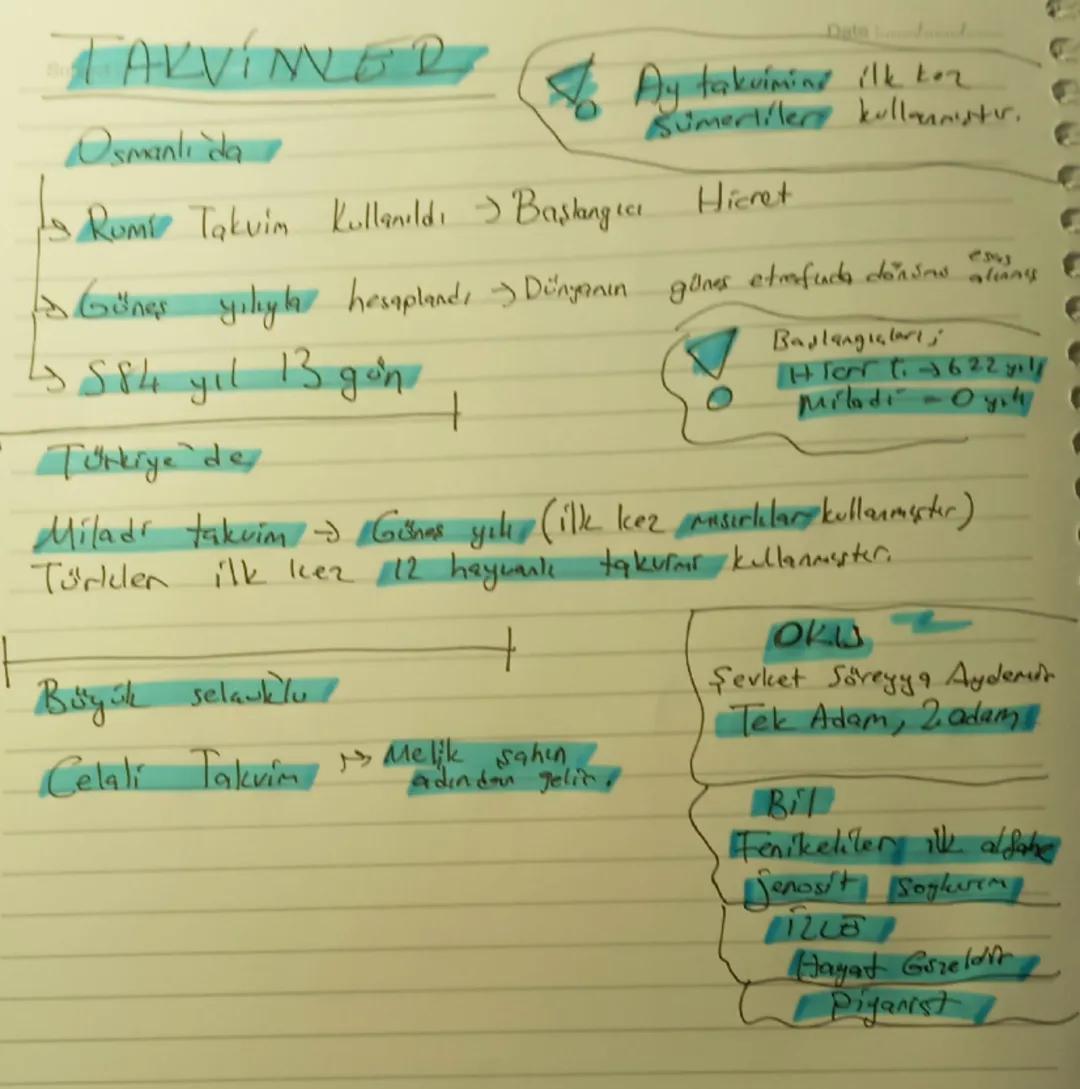 TAKVİMLER
Date
! Ay takvimini ilk kez
sümerliler kullanmıştır.
Osmanlı'da
→ Rumi Takvim Kullanıldı → Başlangıcı Hicret
→ Güneş yılıyla hesaplandı → Dünyanın güneş etrafında dönüşü esas alınmış
→ 584 yıl 13 gün
! Başlangıçları;
Hicri t. → 622 yılı
Miladi - 0 yılı
Türkiye'de
Miladi takvim → Güneş yılı (ilk kez mısırlılar kullanmıştır)
Türkler ilk kez 12 hayvanlı takvimi kullanmıştır.
Büyük selçuklu
Celali Takvim → Melik şahın
adından gelir.
OKU
Şevket Süreyya Aydemir
Tek Adam, 2. adam
Bil
Fenikeliler ilk alfabe
jenosit soykırım
İZLE
Hayat Güzeldir
Piyanist